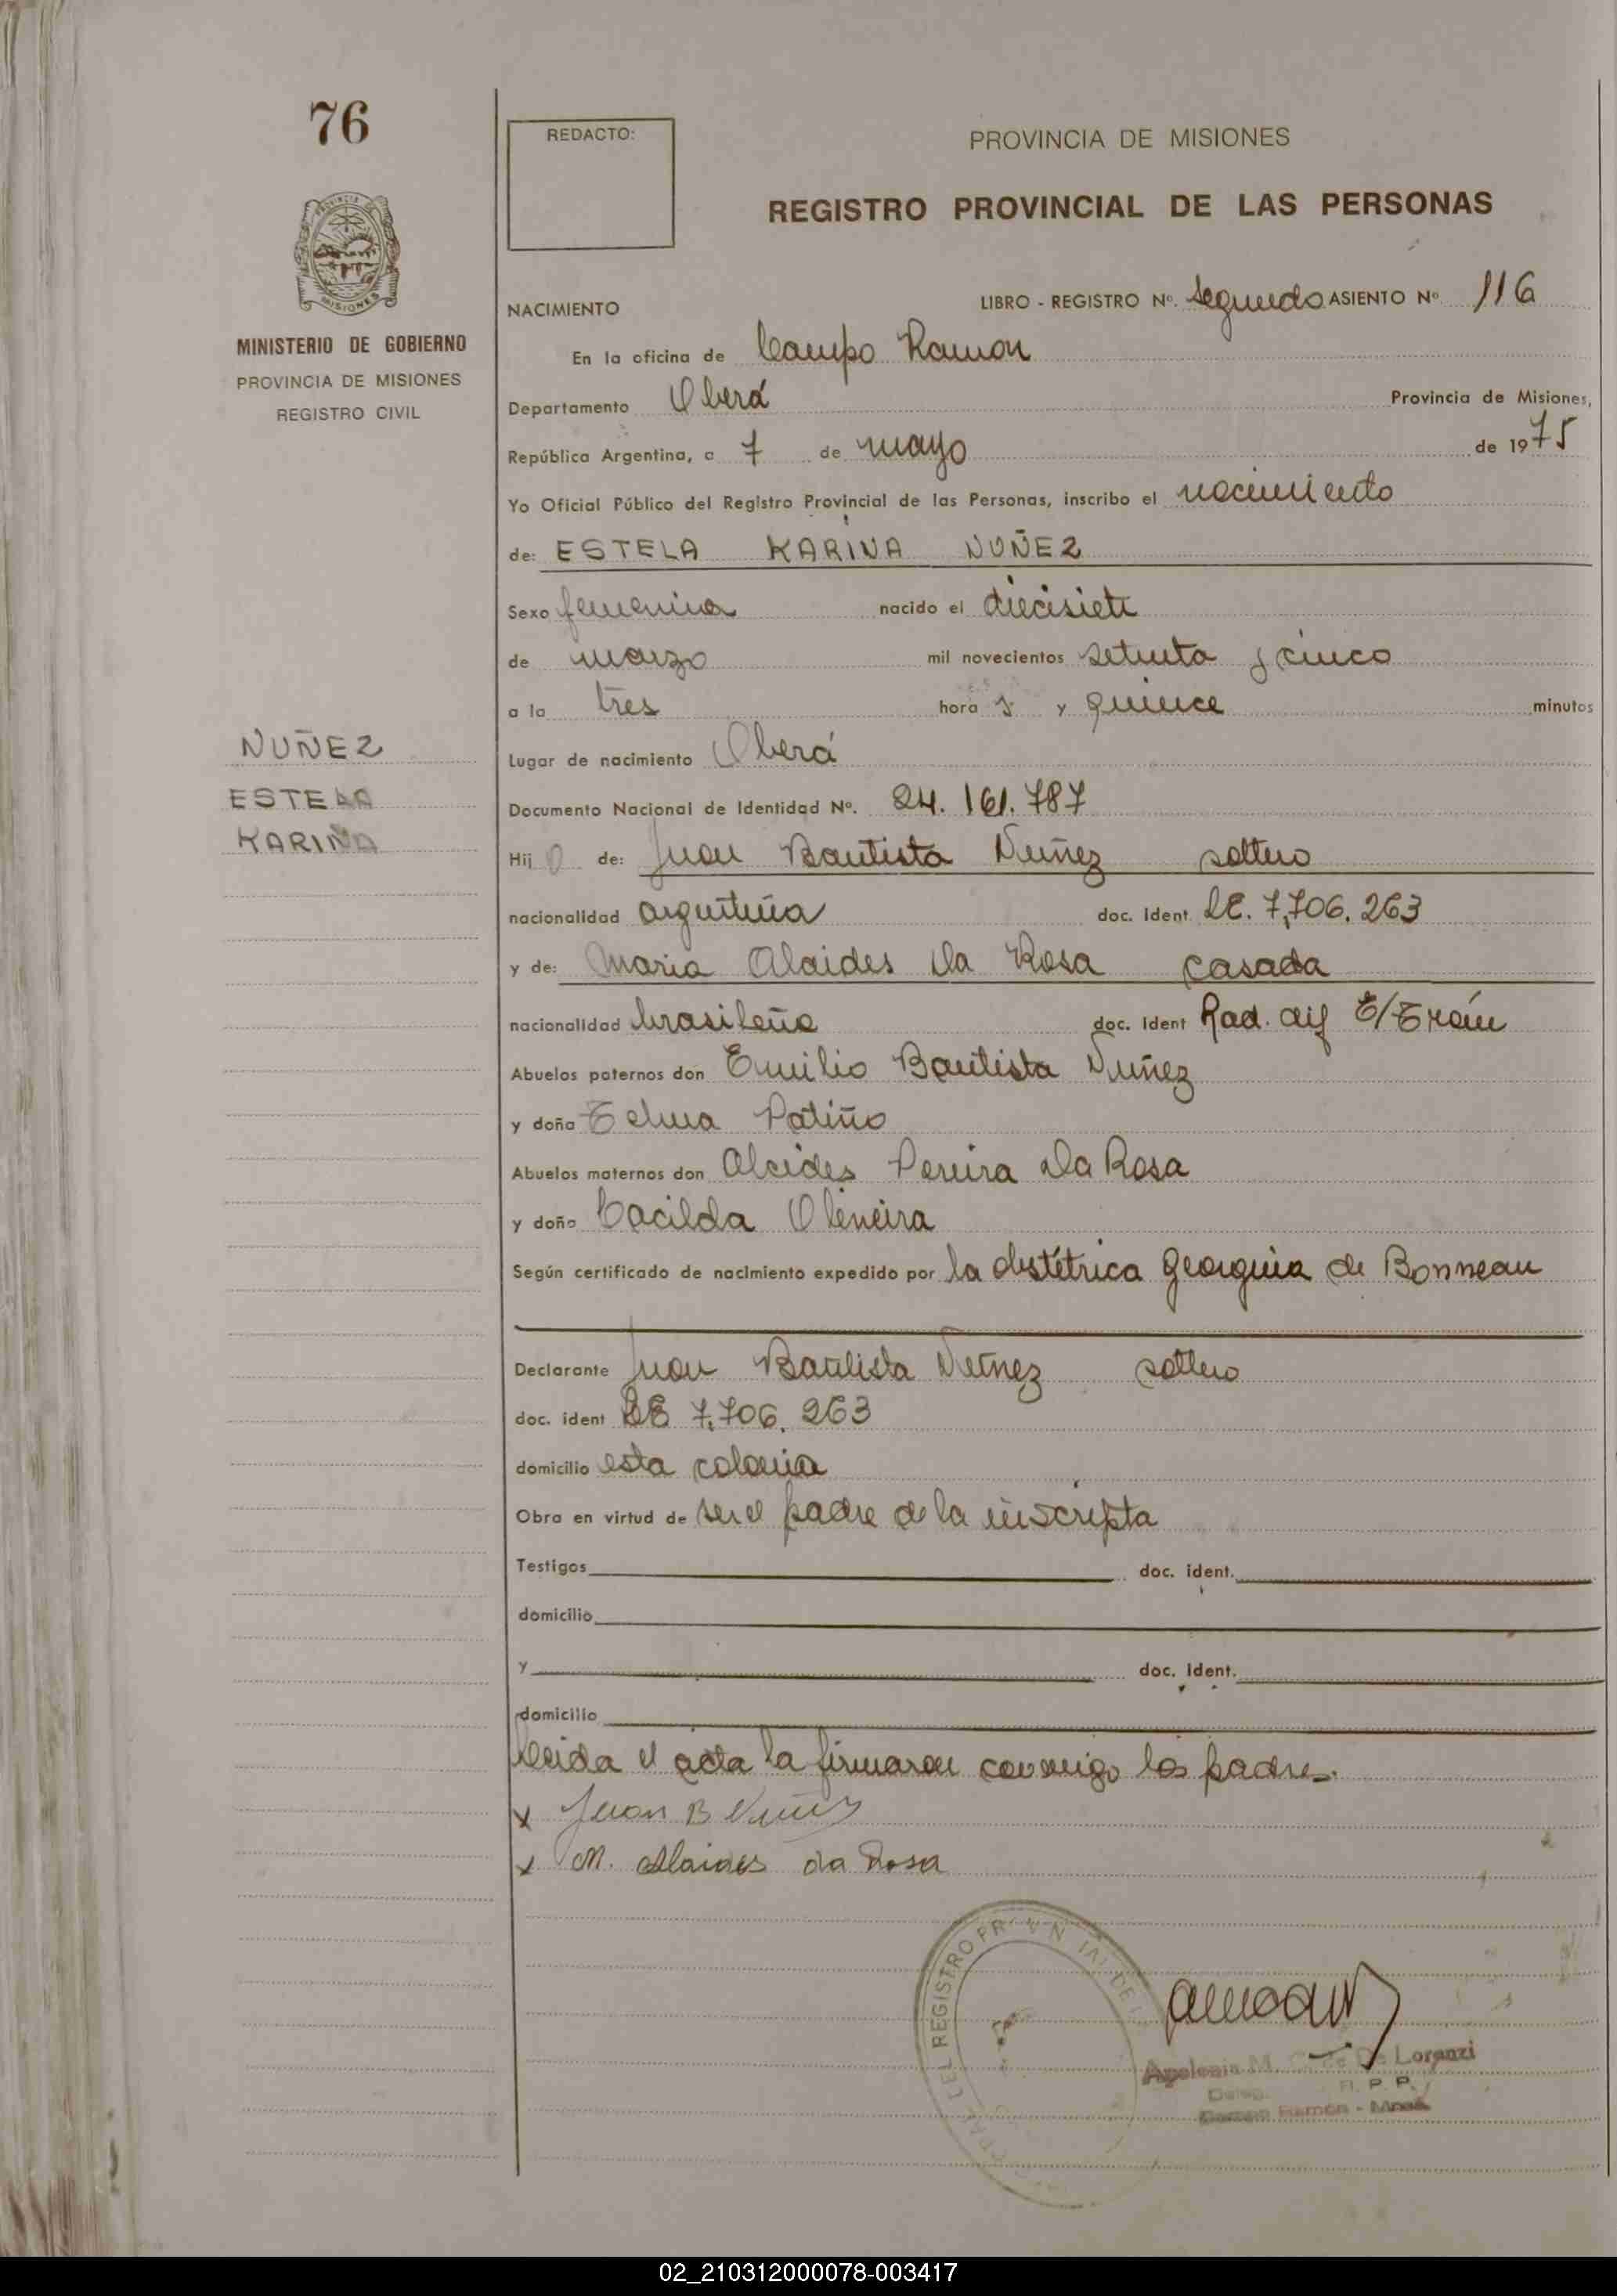 76
REDACTO:
PROVINCIA DE MISIONES
REGISTRO PROVINCIAL DE LAS PERSONAS
PROVINCIA DE
MISIONES
MINISTERIO DE GOBIERNO
PROVINCIA DE MISIONES
REGISTRO CIVIL
NACIMIENTO
LIBRO - REGISTRO Nº. Segundo ASIENTO Nº 116
En la oficina de Campo Ramon
Departamento Oberá Provincia de Misiones,
República Argentina, a 7 de mayo de 1975
Yo Oficial Público del Registro Provincial de las Personas, inscribo el nacimiento
de: ESTELA KARINA NUÑEZ
Sexo femenina nacido el diecisiete
de marzo mil novecientos setenta y cinco
a la tres hora s y quince minutos
NUÑEZ
ESTELA
KARINA
Lugar de nacimiento Oberá
Documento Nacional de Identidad Nº. 24.161.787
Hij a de: Juan Bautista Nuñez soltero
nacionalidad argentina doc. Ident LE. 7.706.263
y de: Maria Alaides Da Rosa casada
nacionalidad brasileña doc. Ident Rad. E/Trám
Abuelos paternos don Emilio Bautista Nuñez
y doña Telma Patiño
Abuelos maternos don Alcides Pereira Da Rosa
y doña Cacilda Oliveira
Según certificado de nacimiento expedido por la obstétrica Georguina de Bonneau
Declarante Juan Bautista Nuñez soltero
doc. ident LE 7.706.263
domicilio esta colonia
Obra en virtud de ser el padre de la inscripta
Testigos doc. ident.
domicilio
y doc. Ident.
domicilio
Leida el acta la firmaron conmigo los padres.
x Juan B Nuñez
x M. Alaides da Rosa
DEL REGISTRO PR V N IAL DE L
Apolonia M. De Lorenzi
Deleg. R. P. P.
Campo Ramón - Mnes.
02_210312000078-003417